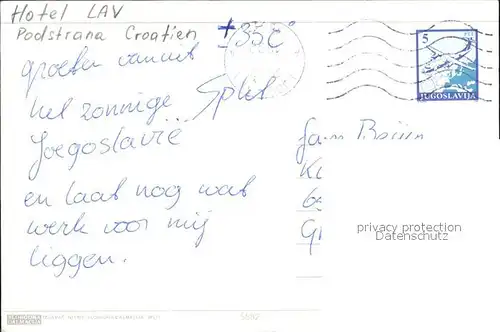 Hotel LAV
Podstrana Croatien
± 35 C°
groeten vanuit
het zonnige Split
Joegoslavië
en laat nog wat
werk voor mij
liggen.
5
JUGOSLAVIJA
privacy protection
Datenschutz